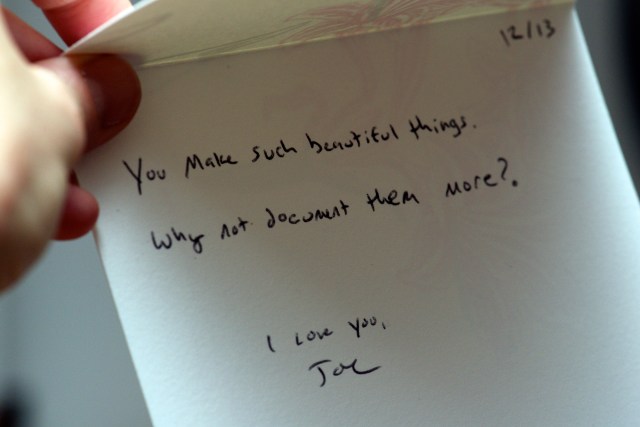 12/13
You Make such beautiful things.
Why not document them more?.
I Love you,
Joe